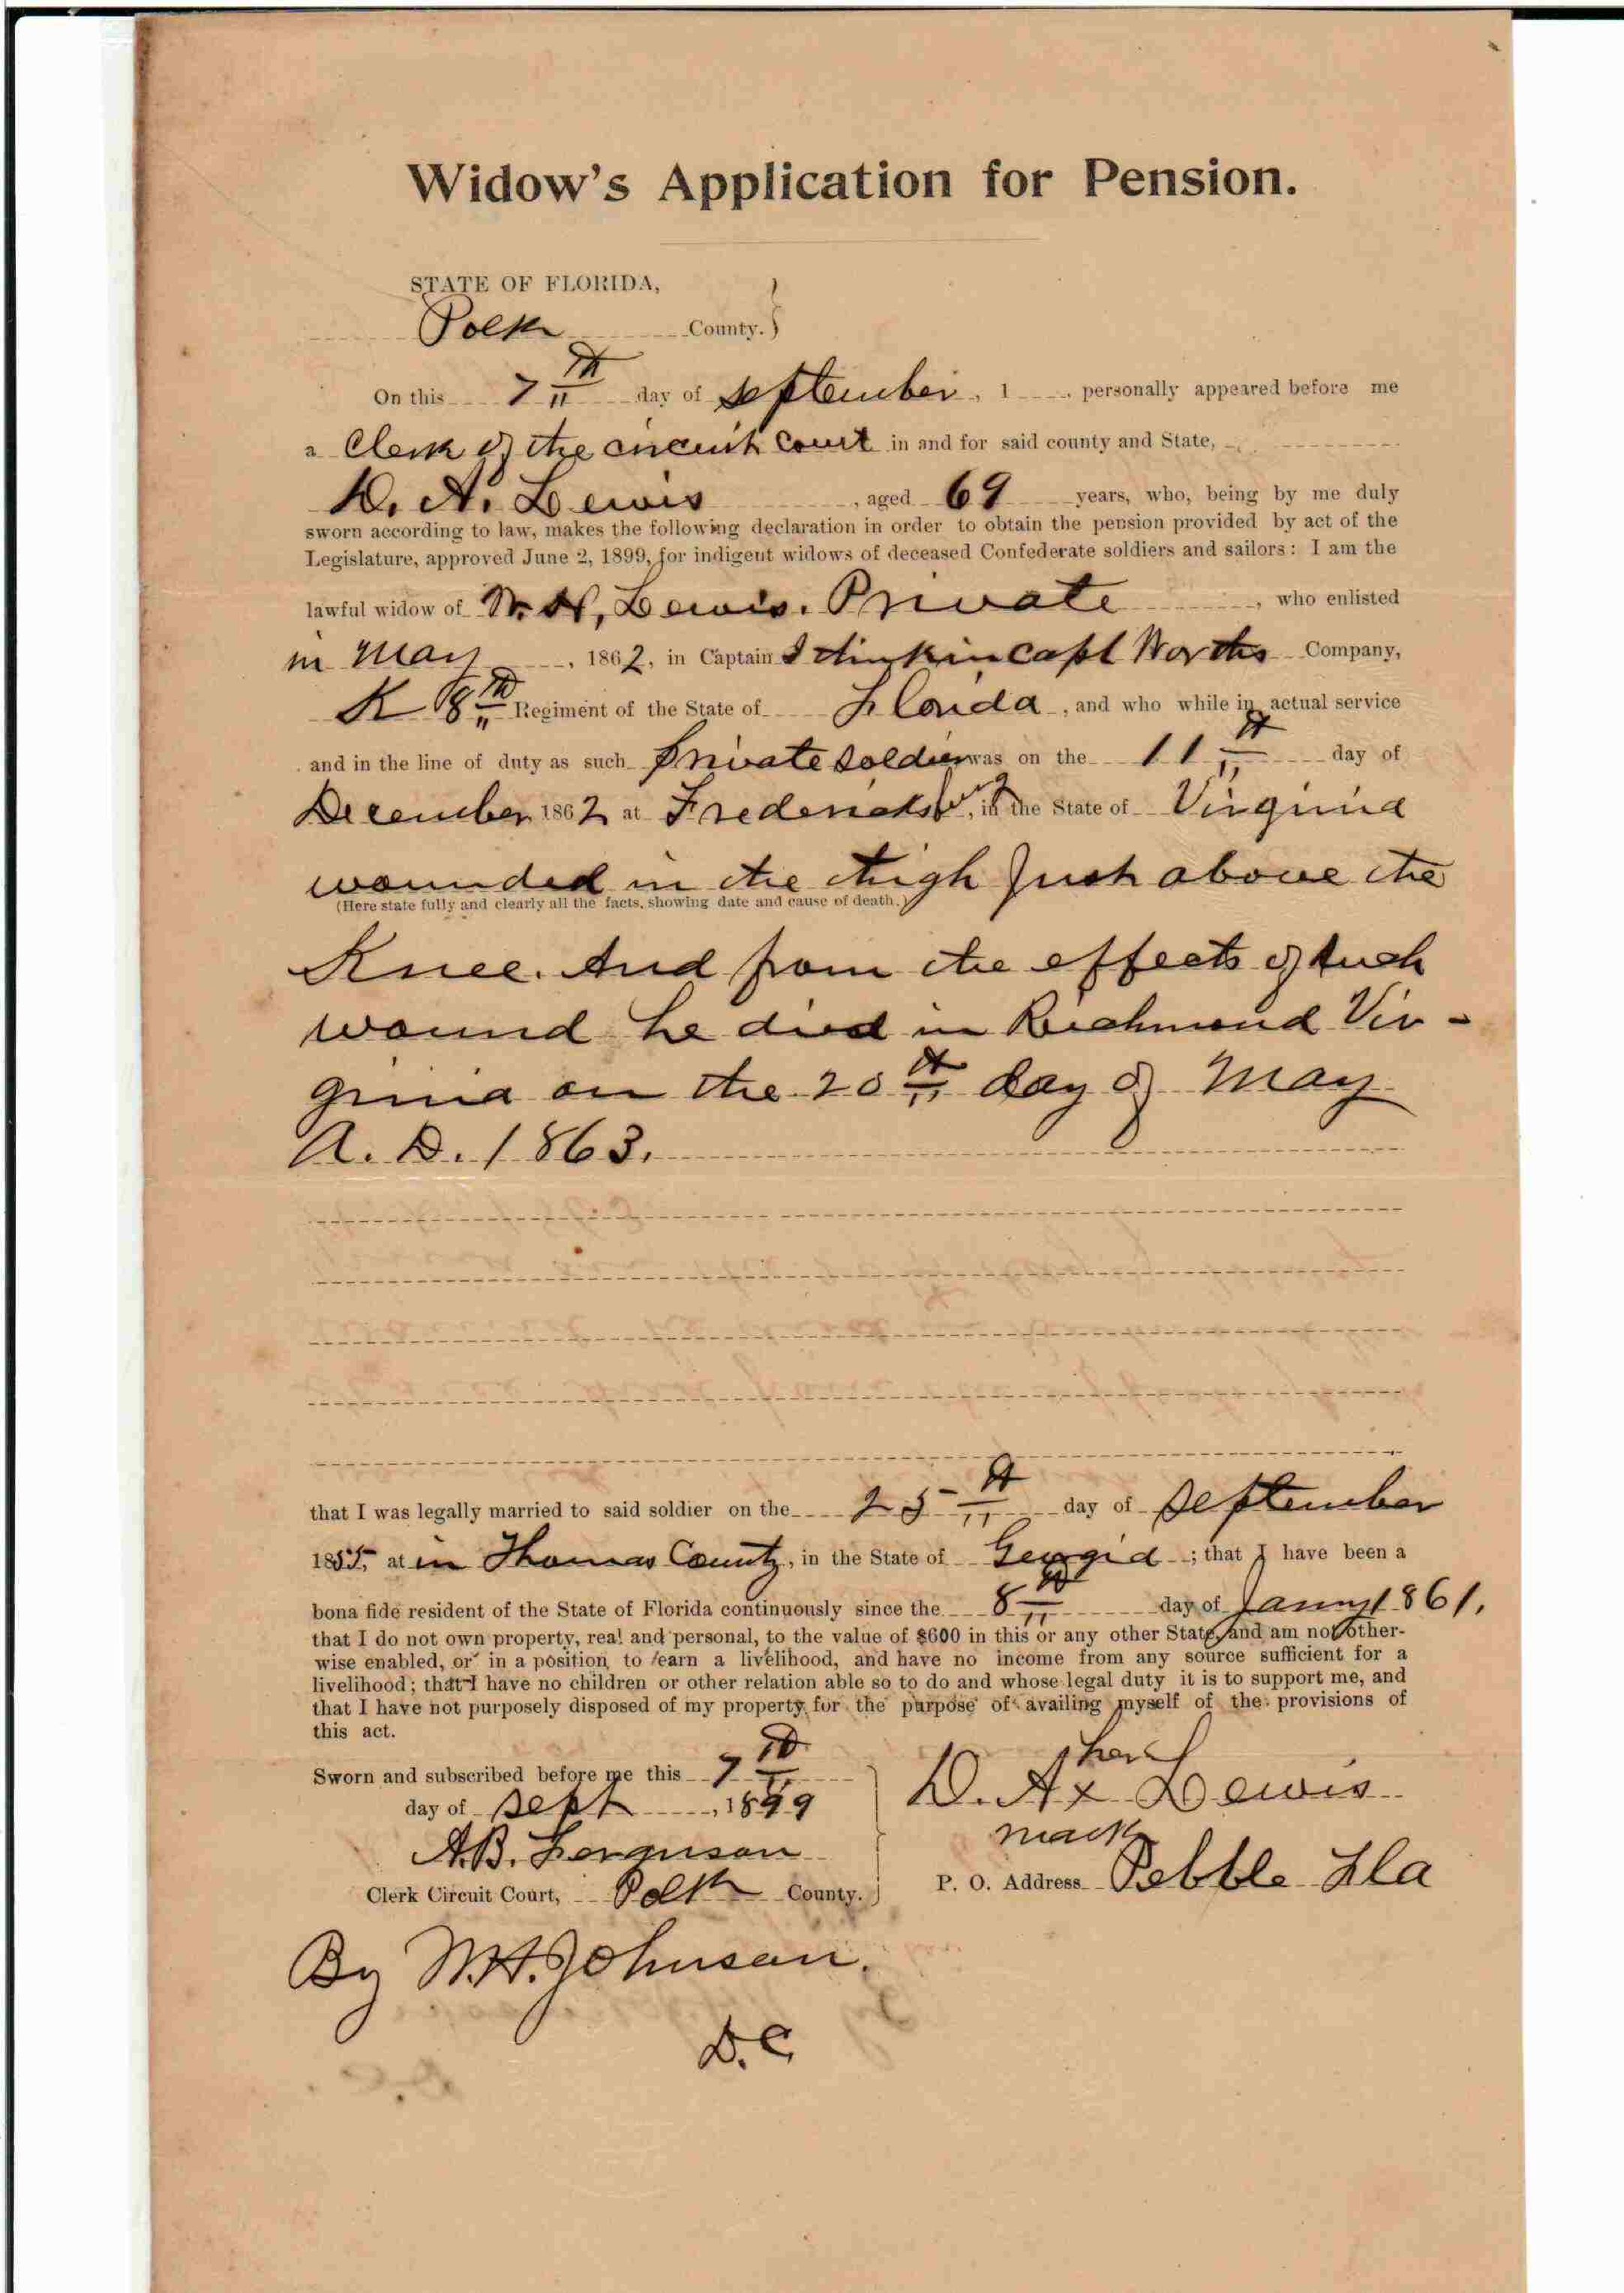 Widow's Application for Pension.
STATE OF FLORIDA,
Polk County.
On this 7th day of september, 1 , personally appeared before me
a Clerk of the circuit court in and for said county and State,
D. A. Lewis, aged 69 years, who, being by me duly
sworn according to law, makes the following declaration in order to obtain the pension provided by act of the
Legislature, approved June 2, 1899, for indigent widows of deceased Confederate soldiers and sailors: I am the
lawful widow of W. H, Lewis. Private, who enlisted
in May, 1862, in Captain I think in Capt Worths Company,
K 8th Regiment of the State of Florida, and who while in actual service
and in the line of duty as such private soldier was on the 11th day of
December 1862 at Fredericksburg, in the State of Virginia
wounded in the thigh Just above the
(Here state fully and clearly all the facts, showing date and cause of death.)
Knee. And from the effects of such
wound he died in Richmond Vir-
ginia on the 20th day of May
A. D. 1863.
that I was legally married to said soldier on the 25th day of September
1855, at in Thomas County, in the State of Georgia; that I have been a
bona fide resident of the State of Florida continuously since the 8th day of Jany 1861.
that I do not own property, real and personal, to the value of $600 in this or any other State, and am not other-
wise enabled, or in a position to earn a livelihood, and have no income from any source sufficient for a
livelihood; that I have no children or other relation able so to do and whose legal duty it is to support me, and
that I have not purposely disposed of my property for the purpose of availing myself of the provisions of
this act.
Sworn and subscribed before me this 7th
day of Sept, 1899
A.B. Ferguson
Clerk Circuit Court, Polk County.
her
D. A x Lewis
mark
P. O. Address Pebble Fla
By W.H. Johnson.
D.C.